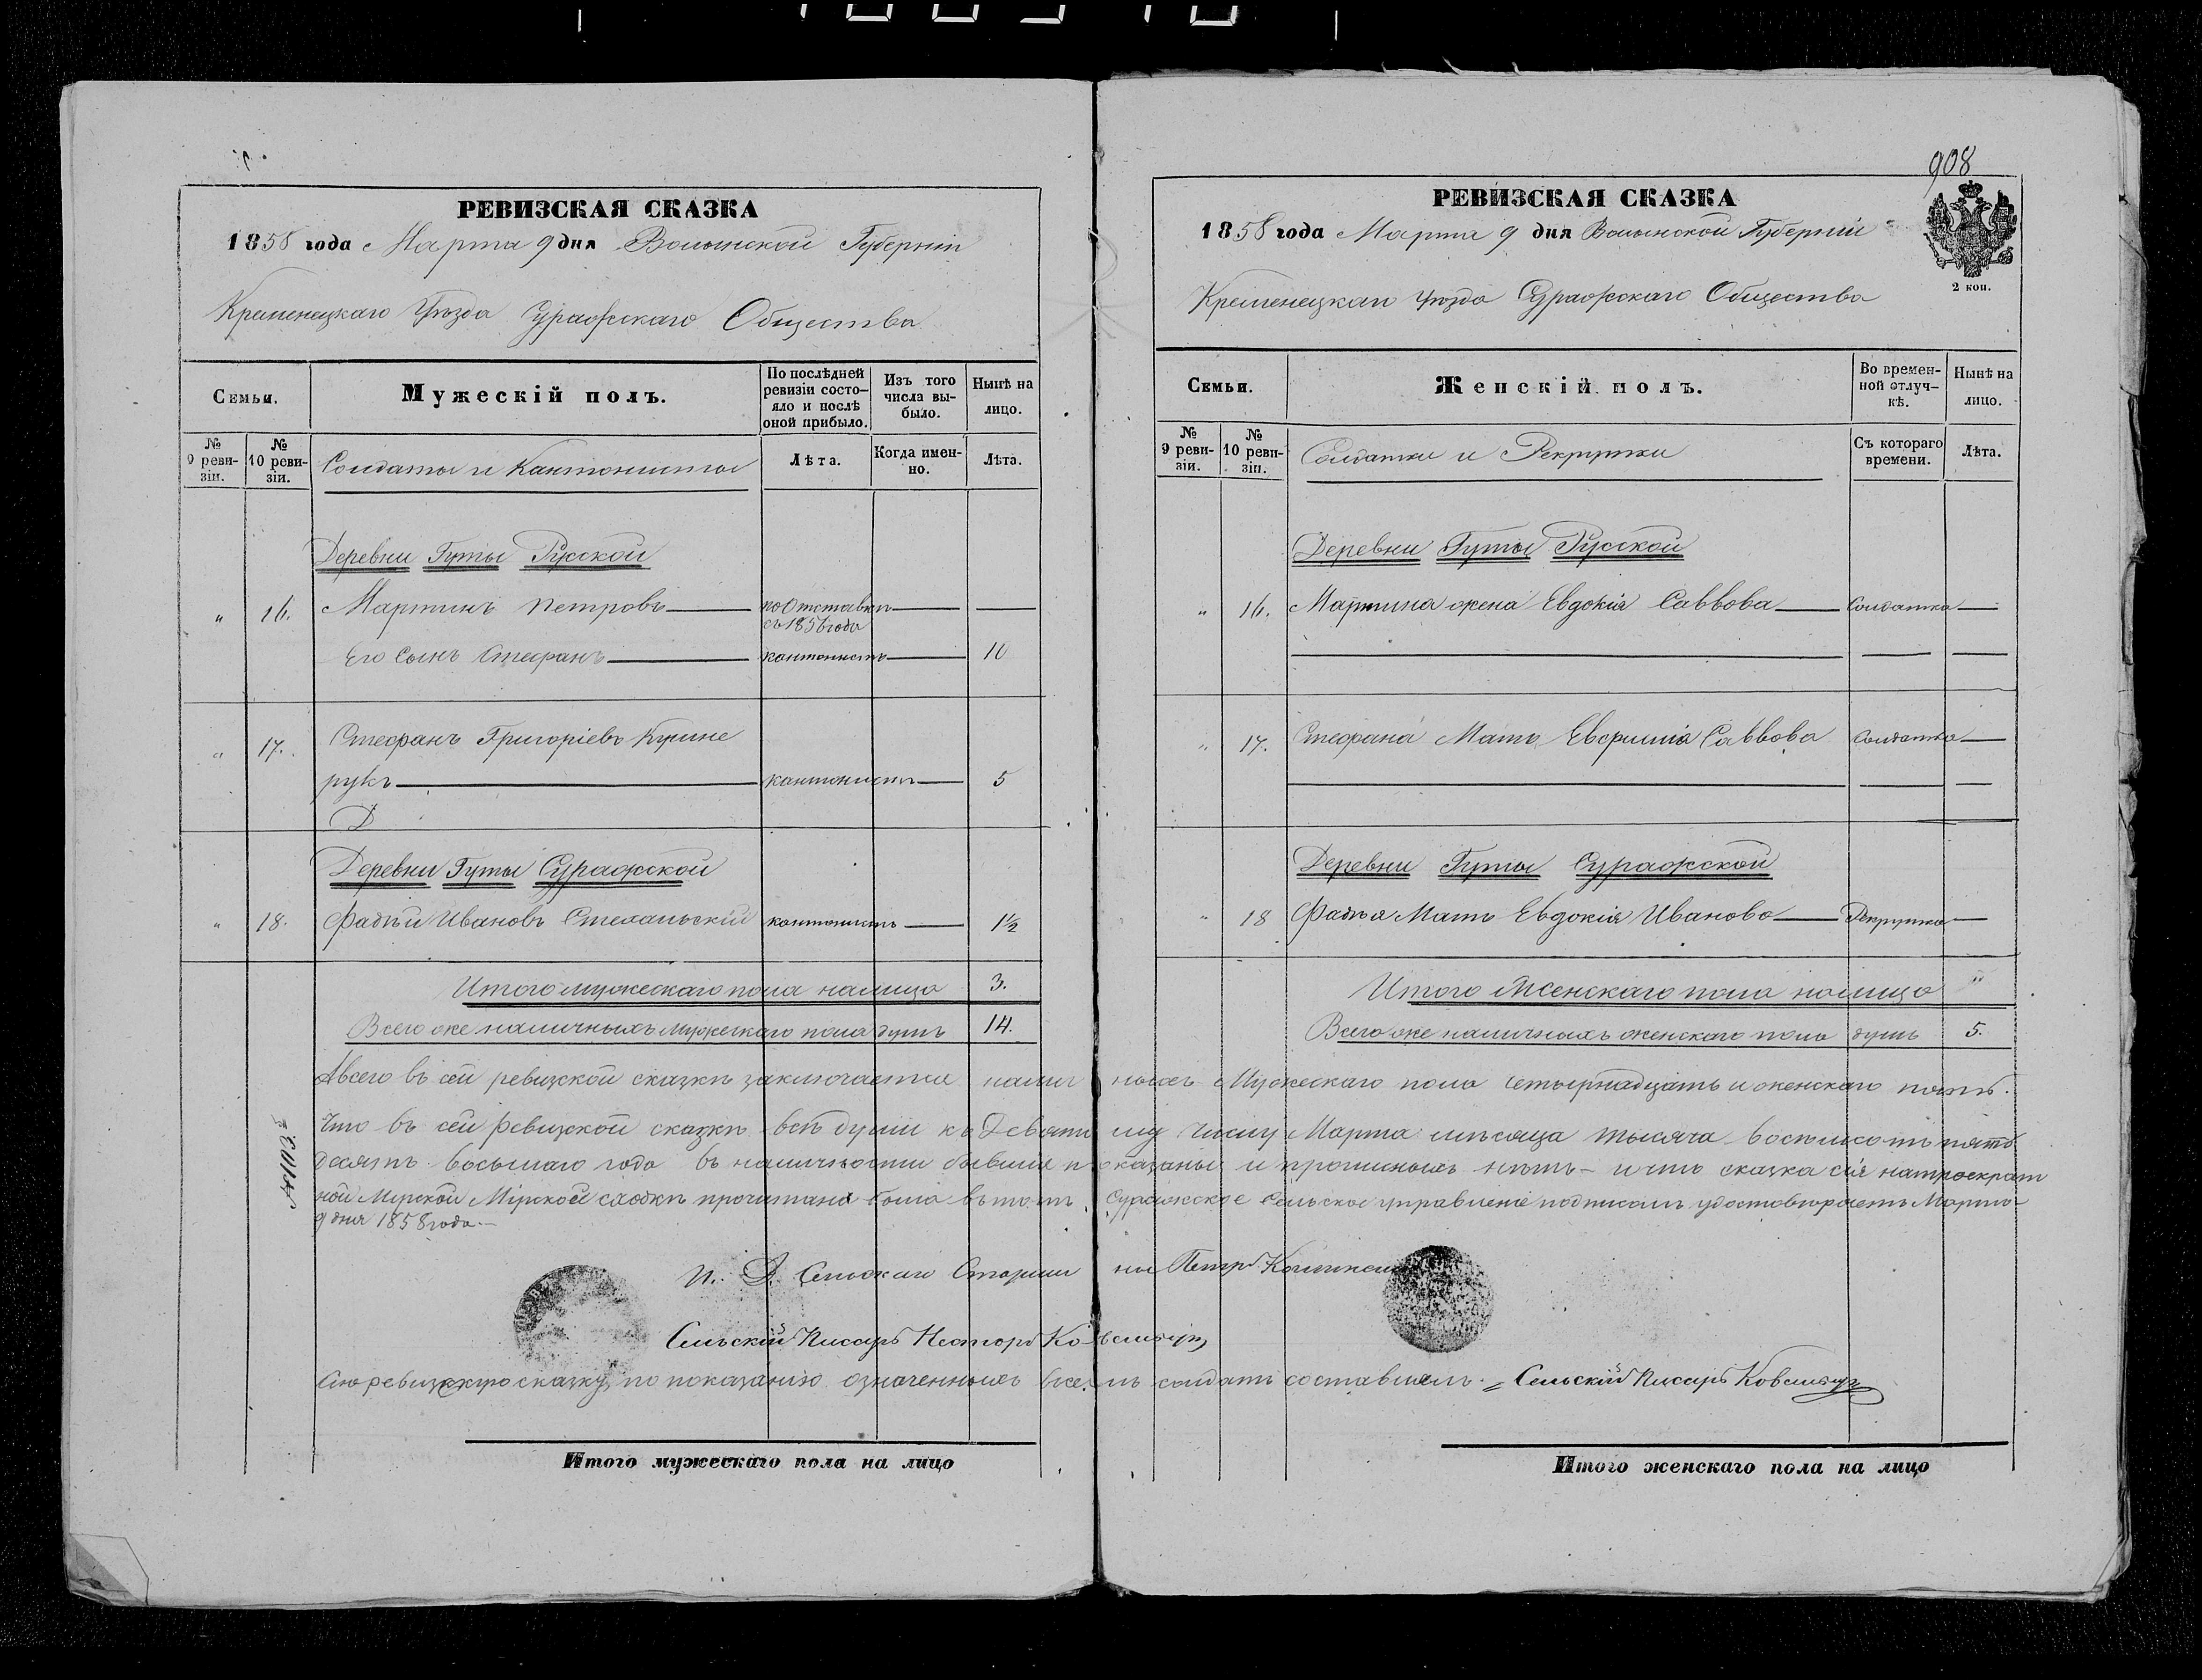 РЕВИЗСКАЯ СКАЗКА
1858 года Марта 9 дня Волынской Губерніи
Кременецкаго Уѣзда Суражскаго Общества
Семьи.
Мужескій полъ.
По послѣдней ревизіи состояло и послѣ оной прибыло.
Изъ того числа выбыло.
Нынѣ на лицо.
№ 9 ревизіи.
№ 10 ревизіи.
Солдаты и Кантонисты
Лѣта.
Когда именно.
Лѣта.
Деревни Гуты Русской
" 16. Мартинъ Петровъ по Отставкѣ
съ 1856 года
Его Сынъ Стефанъ кантонистъ 10
" 17. Стефанъ Григоріевъ Кушне
рукъ кантонистъ 5
Д
Деревни Гуты Суражской
" 18. Фадѣй Ивановъ кантонистъ 1½
Итого мужескаго пола налицо 3.
Всего же наличныхъ мужескаго пола душъ 14.
908
РЕВИЗСКАЯ СКАЗКА
1858 года Марта 9 дня Волынской Губерніи
2 коп.
Кременецкаго Уѣзда Суражскаго Общества
Семьи.
Женскій полъ.
Во временной отлучкѣ.
Нынѣ на лицо.
№ 9 ревизіи.
№ 10 ревизіи.
Солдатки и Рекрутки
Съ котораго времени.
Лѣта.
Деревни Гуты Русской
" 16. Мартина жена Евдокія Саввова Солдатка
" 17. Стефана Мать Евфимія Саввова Солдатка
Деревни Гуты Суражской
" 18 Фадѣя Мать Евдокія Иванова Рекрутка
Итого Женскаго пола налицо "
Всего же наличныхъ женскаго пола душъ 5.
А всего въ сей ревизской сказкѣ заключается наличныхъ Мужескаго пола четырнадцать и женскаго пять.
Что въ сей Ревизской сказкѣ всѣ души къ Девятому числу Марта мѣсяца тысяча восемьсотъ пятьдесятъ
восьмаго года въ наличности бывшія показаны и прописныхъ нѣтъ – и что сказка сія на троекратной
Мірской сходкѣ прочитана была въ томъ Суражское Сельское управленіе подписомъ удостовѣряетъ Марта
9 дня 1858 года. –
И. Д. Сельскаго Старшины Петръ
Сельскій Писарь Несторъ
Сію ревизскую сказку, по показанію означенныхъ всемъ солдатъ составлялъ. Сельскій Писарь
Итого мужескаго пола на лицо
Итого женскаго пола на лицо